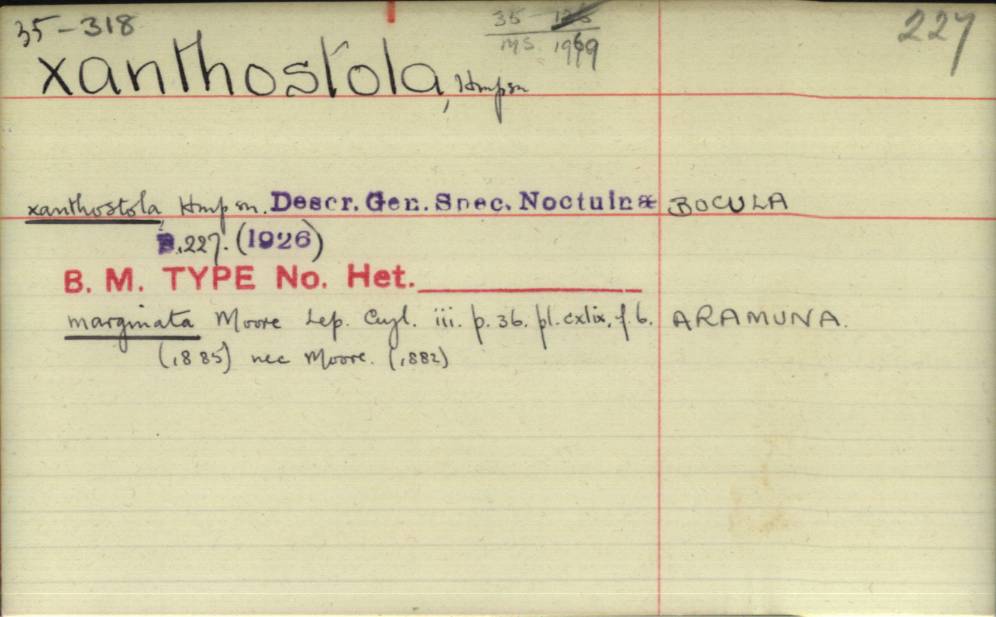 35-318
35 - 135
MS. 1969
227
xanthostola, Hmpsn
xanthostola, Hmpsn. Descr. Gen. Spec. Noctuinæ BOCULA
p.227. (1926)
B. M. TYPE No. Het.
marginata Moore Lep. Ceyl. iii. p. 36. pl. cxlix, f. 6. ARAMUNA.
(1885) nec Moore. (1882)